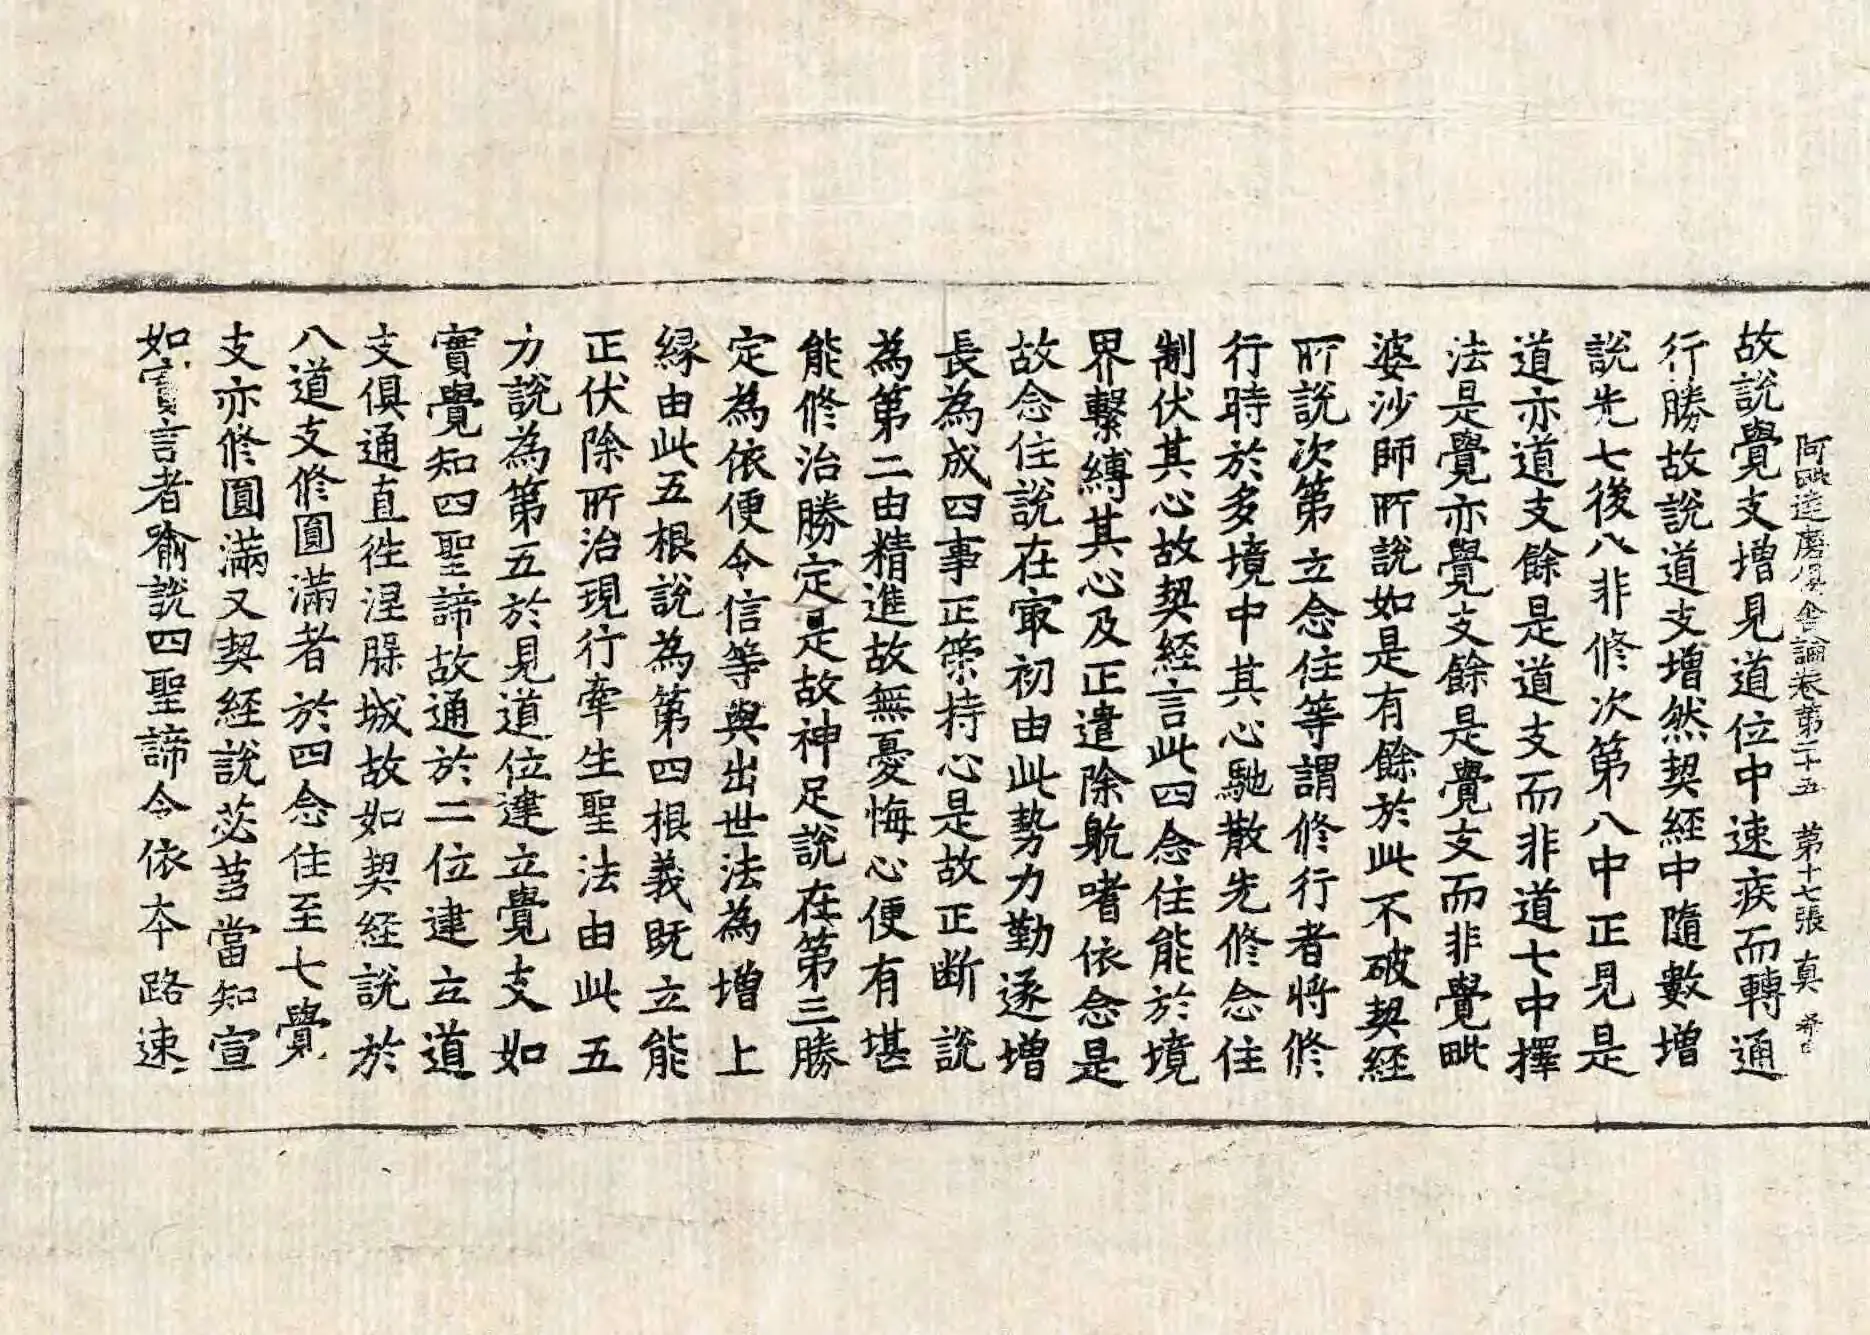 故說覺支增見道位中速疾而轉通
阿毗達磨俱舍論卷第二十五 第十七張 真
行勝故說道支增然契經中隨數增
說先七後八非修次第八中正見是
道亦道支餘是道支而非道七中擇
法是覺亦覺支餘是覺支而非覺毗
婆沙師所說如是有餘於此不破契經
所說次第立念住等謂修行者將修
行時於多境中其心馳散先修念住
制伏其心故契經言此四念住能於境
界繫縛其心及正遣除躭嗜依念是
故念住說在㝡初由此勢力勤遂增
長為成四事正策持心是故正断說
為第二由精進故無憂悔心便有堪
能修治勝定是故神足說在第三勝
定為依便令信等與出世法為增上
緣由此五根說為第四根義既立能
正伏除所治現行牽生聖法由此五
力說為第五於見道位建立覺支如
實覺知四聖諦故通於二位建立道
支俱通直徃涅槃城故如契經說於
八道支修圓滿者於四念住至七覺
支亦修圓滿又契經說苾芻當知宣
如實言者喻說四聖諦令依本路速